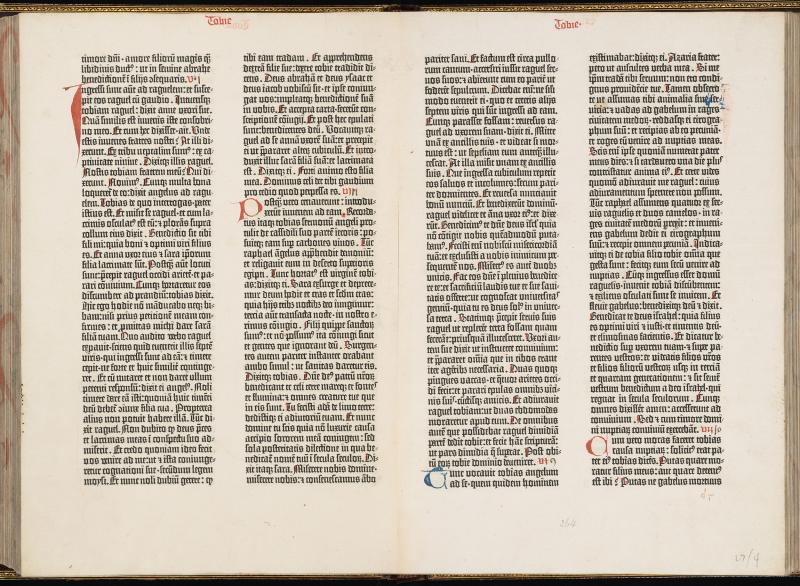 Tobie
timore dñi · amore filiorũ magis q̃
libidinis duct⁹: ut in semine abrahe
benedictionẽ ĩ filijs assequaris. VII
Ingressi sunt aũt ad raguelem: et susce-
pit eos raguel cũ gaudio. Intuensq̃
tobiam raguel: dixit anne uxori sue.
Quã similis est iuvenis iste consobri-
no meo. Et cum hec dixisset · ait. Unde
estis iuvenes fratres nostri? At illi di-
xerunt. Ex tribu neptalim sum⁹: ex ca-
ptivitate ninive. Dixitq̃ illis raguel.
Nostis tobiam fratrem meũ? Qui di-
xerunt. Novim⁹. Cumq̃ multa bona
loqueret̃ de eo: dixit angelus ad ragu-
elem. Tobias de quo interrogas · pater
istius est. Et misit se raguel · et cum la-
crimis osculat⁹ est eũ: et plorãs supra
collum eius dixit. Benedictio sit tibi
fili mi: quia boni et optimi viri filius
es. Et anna uxor eius et sara ip̃orum
filia lacrimate sũt. Postq̃ aũt locuti
sunt: p̃cepit raguel occidi arietẽ · et pa-
rari convivium. Cumq̃ hortaretur eos
discumbere ad prandiũ: tobias dixit.
Hic ego hodie nõ mãducabo neq̃ bi-
bam: nisi prius petitionẽ meam con-
firmes: et promittas michi dare sarã
filiã tuam. Quo audito verbo raguel
expavit · sciens quid evenerit illis septẽ
viris · qui ingressi sunt ad eã: et timere
cepit · ne forte et huic similit̃ continge-
ret. Et cũ nutaret et non daret ullum
petenti responsũ: dixit ei angel⁹. Noli
timere dare eã isti: quoniã huic timẽti
deũ debet̃ ciunx filia tua. Propterea
alius non potuit habere illã. Tũc di-
xit raguel. Non dubito q̃ deus preces
et lacrimas meas ĩ conspectu suo ad-
miserit. Et credo quoniam ideo fecit
vos venire ad me: ut et ista coniunge-
retur cognationi sue · secũdum legem
moysi. Et nunc noli dubiũ gerere: q̃
tibi eam tradam. Et apprehendens
dexterã filie sue: dextere tobie tradidit di-
cens. Deus abrahã et deus ysaac et
deus iacob vobiscũ sit · et ipse coniun-
gat vos: impleatq̃ benedictionẽ suã
in vobis. Et accepta carta · fecerũt con-
scriptionẽ coniugij. Et post hec epulati
sunt: benedicentes deũ. Vocavitq̃ ra-
guel ad se annã uxorẽ suã: et precepit
ei ut p̃pararet alterũ cubiculũ. Et intro-
duxit illuc sarã filiã suã: et lacrimata
est. Dixitq̃ ei. Forti animo esto filia
mea. Dominus celi det tibi gaudium
pro tedio quod perpessa es. VIII
Postq̃ vero cenaverunt: introdu-
xerũt iuvenem ad eam. Recorda-
tus itaq̃ tobias sermonũ angeli · pro-
tulit de cassidili suo partẽ iecoris: po-
suitq̃ eam sup carbones vivos. Tũc
raphael angelus app̃hendit demoniũ:
et religavit eum in deserto superioris
egipti. Tunc hortat⁹ est virginẽ tobi-
as: dixitq̃ ei. Sara exsurge et deprece-
mur deum hodie et cras et sc̃dm cras:
quia hijs tribus noctib⁹ deo iungimur:
tercia aũt transacta nocte · in nostro e-
rimus coniugio. Filij quippe sanctor̃
sum⁹: et nõ possum⁹ ita coniungi sicut
et gentes que ignorant deũ. Surgen-
tes autem pariter instanter orabant
ambo simul: ut sanitas daretur eis.
Dixitq̃ tobias. Dñe de⁹ patrũ nr̃or̃:
benedicant te celi terre mareq̃ et fontes
et flumina: et omnes creature tue que
in eis sunt. Tu fecisti adã de limo terre:
dedistiq̃ ei adiutoriũ evam. Et nunc
domine tu scis quia nõ luxurie causa
accipio sororem meã coniugem: sed
sola posteritatis dilectione in qua be-
nedicat̃ nomẽ tuũ ĩ secula seculor̃. Di-
xit itaq̃ sara. Miserere nobis domine ·
miserere nobis: et consenescamus ãbo
Tobie
pariter sani. Et factum est circa pullo-
rum cantum · accersiri iussit raguel ser-
vos suos: et abierunt cum eo pariter ut
foderent sepulcrum. Dicebat enĩ: ne sili
modo evenerit ei: quo et ceteris illis
septem viris qui sũt ingressi ad eam.
Cumq̃ parassent fossam: reversus ra-
guel ad uxorem suam · dixit ei. Mitte
unã ex ancillis tuis · et videat si mor-
tuus est: ut sepeliam eum anteq̃ illu-
cescat. At illa misit unam ex ancillis
suis. Que ingressa cubiculum repperit
eos salvos et incolumes: secum pari-
ter dormientes. Et reversa nunciavit
bonũ nunciũ. Et benedixerũt dominũ:
raguel videlicet et ãna uxor ei⁹: et dixe-
rũt. Benedicim⁹ te dñe deus isrl̃ · quia
nõ cõtigit nobis quẽadmodũ puta-
bam⁹. Fecisti enĩ nobiscũ misericordiã
tuã: et exclusisti a nobis inimicum per-
sequentẽ nos. Misert⁹ es aut̃ duob⁹
unicis. Fac eos dñe plenius bndice-
re te: et sacrificiũ laudis tue et sue sani-
tatis offerre: ut cognoscat universitas
gentiũ · quia tu es deus sol⁹ in univer-
sa terra. Statimq̃ p̃cepit servis suis
raguel ut replerẽt terra fossam quam
fecerãt: priusquã illucesceret. Uxori au-
tem sue dixit ut instrueret convivium:
et p̃pararet omia que in cibos erant
iter agẽtib⁹ necessaria. Duas quoq̃
pingues vaccas · et quatuor arietes occi-
di fecit: et parari epulas omnib⁹ vici-
nis suis · cũctisq̃ amicis. Et adiuravit
raguel tobiam: ut duas ebdomadas
moraretur apud eum. De omnibus
autẽ que possidebat raguel dimidiã
partẽ dedit tobie: et fecit hãc scripturã:
ut pars dimidia q̃ supesset · Post obi-
tũ eor̃ tobie dominio deveniret. IX
Tunc vocavit tobias angelum
ad se · quem quidem hominem
existimabat: dixitq̃ ei. Azaria frater:
peto ut auscultes verba mea. Si me
ip̃m tradã tibi servum: non ero condi-
gnus providẽtie tue. Tamen obsecro
te ut assumas tibi animalia sive ser-
vicia: et vadas ad gabelum in rages
civitatem medor̃ · reddasq̃ ei cirogra-
phum suũ: et recipias ab eo pecuniã ·
et roges eũ venire ad nuptias meas.
Scis enĩ ip̃e quoniã numerat pater
meus dies: et si tardavero una die plus ·
contristatur anima ei⁹. Et certe vides
quomõ adiuravit me raguel: cuius
adiuramentum spernere non possum.
Tũc raphael assumens quatuor ex ser-
vis raguelis et duos camelos · in ra-
ges civitatẽ medor̃ p̃rexit: et inveni-
ens gabelum dedit ei cirographum
suũ: et recepit omnem pecuniã. Indica-
vitq̃ ei de tobia filio tobie omĩa que
gesta sunt: fecitq̃ eum secũ venire ad
nuptias. Cumq̃ ingressus esset domũ
raguelis · invenit tobiã discũbentem:
et exiliens osculati sunt se invicem. Et
flevit gabelus: benedixitq̃ deũ et dixit.
Benedicat te deus israhel: quia filius
es optimi viri et iusti · et timentis deũ ·
et elimosinas facientis. Et dicatur be-
nedictio sup uxorem tuam · et supr pa-
rentes vestros: et videatis filios vr̃os ·
et filios filiorũ vestror̃ · usq̃ in terciã
et quartam generationem: et sit semẽ
vestrum benedictum a deo israhel · qui
regnat in secula seculorum. Cumq̃
omnes dixissẽt amen: accesserunt ad
convivium. Sed et cum timore domi-
ni nuptiar̃ conviviũ exercebãt. X
Cum vero moras faceret tobias
causa nuptiar̃: solicit⁹ erat pa-
ter ei⁹ tobias dicẽs. Putas quare mo-
ratur filius meus: aut quare detent⁹
est ibi? Putas ne gabelus mortuus
264